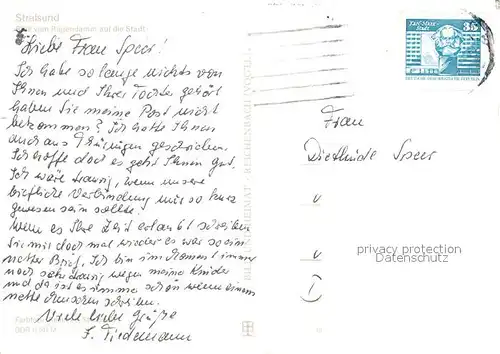 Stralsund
Blick vom Rügendamm auf die Stadt
Liebe Frau Speer!
Ich habe so lange nichts von
Ihnen und Ihrer Tochter gehört
haben Sie meine Post nicht
bekommen? Ich hatte Ihnen
auch aus Thüringen geschrieben.
Ich hoffe doch es geht Ihnen gut.
Ich wäre traurig, wenn unsere
briefliche Verbindung nur so kurz
gewesen sein sollte.
Wenn es Ihre Zeit erlaubt schreiben
Sie mir doch mal wieder es war so ein
netter Brief. Ich bin im Moment immer
noch sehr traurig wegen meine Kinder
und da ist es immer schön wenn einem
nette Menschen schreiben.
Viele liebe Grüße
F. Tiedemann
BILD UND HEIMAT REICHENBACH (VOGTL)
35
Frau
Diethilde Speer
privacy protection
Datenschutz
I